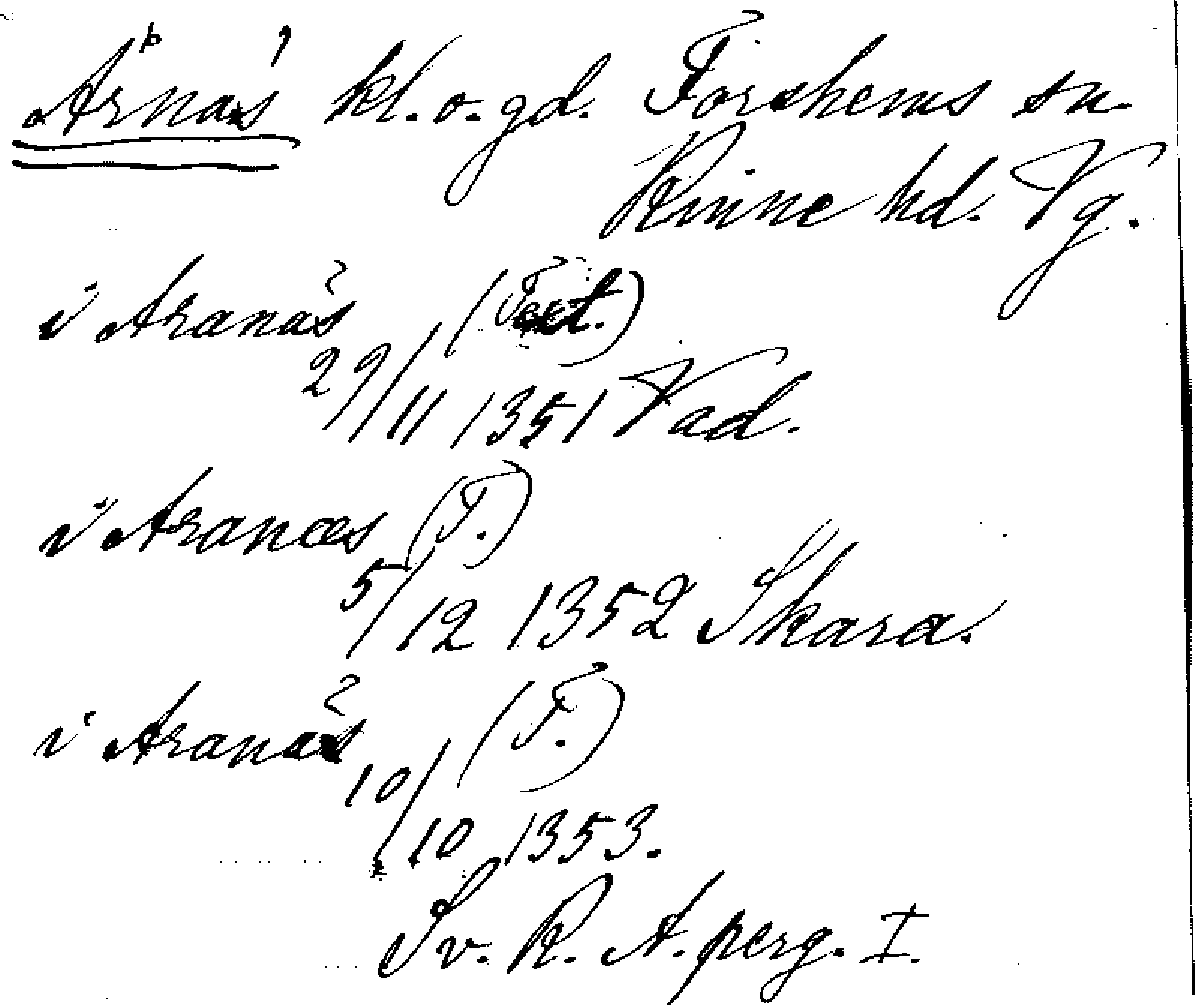 Årnäs kl. o. gd. Forshems sn.
Kinne hd. Vg.
i Aranäs (Text.)
29/11 1351 Vad.
i Aranæs (T.)
5/12 1352 Skara.
i Aranäs (T.)
10/10 1353.
Sv. R. A. perg. I.